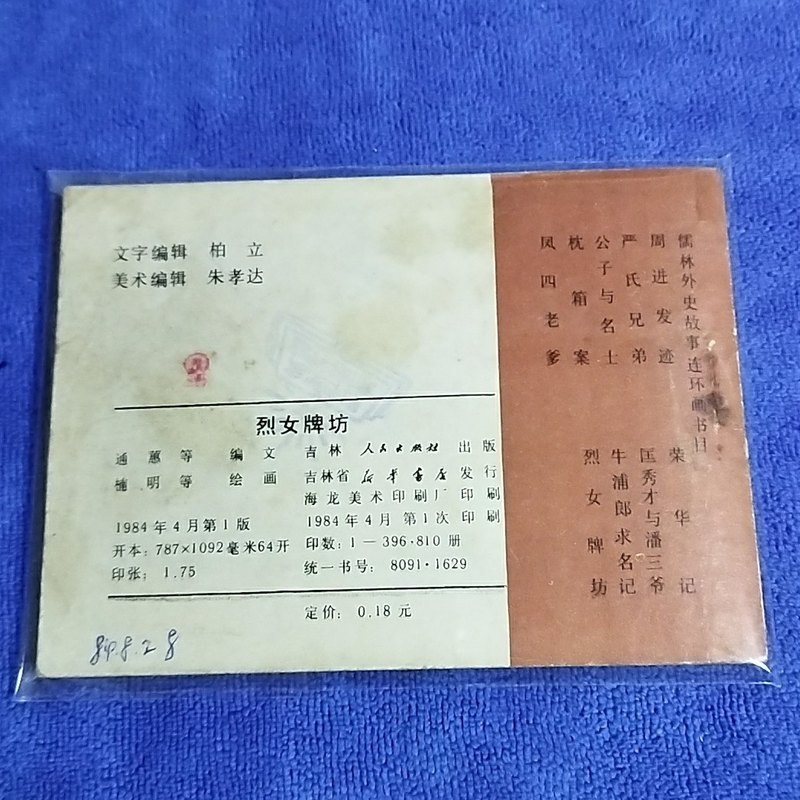 文字编辑 柏 立
美术编辑 朱孝达
烈女牌坊
通 蕙 等 编 文 吉 林 人民出版社 出 版
楠 明 等 绘 画 吉林省 新华书店 发 行
海 龙 美 术 印 刷 厂 印 刷
1984 年 4 月 第 1 版 1984 年 4 月 第 1 次 印 刷
开本：787×1092毫米64开 印数：1 — 396·810 册
印张：1.75 统一书号：8091·1629
定价：0.18 元
儒林外史故事连环画书目
周进发迹
严氏兄弟
公子与名士
枕箱案
凤四老爹
荣华记
匡秀才与潘三爷
牛浦郎求名记
烈女牌坊